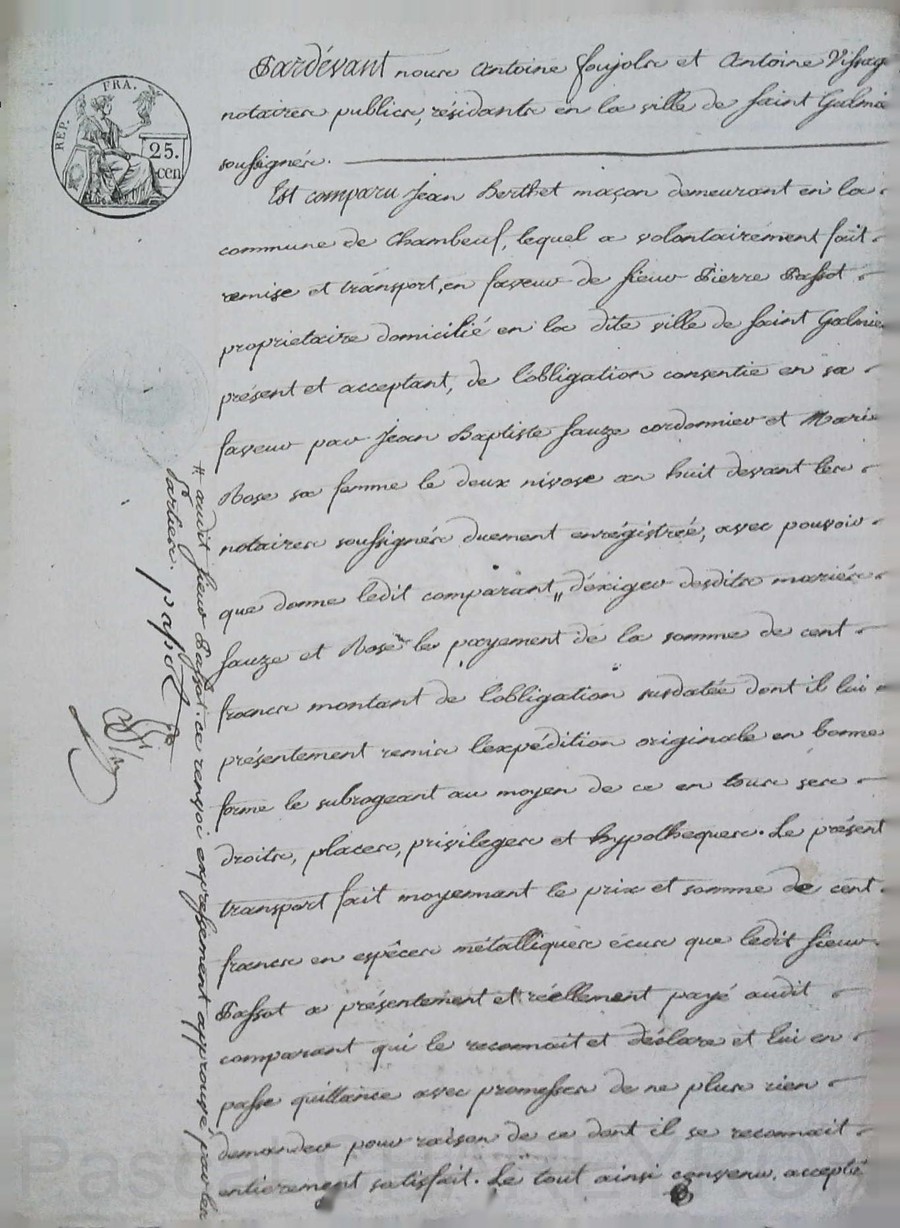 REP. FRA.
25.
cen
Pardevant nous Antoine Foujols et Antoine Vissag
notaires publics, résidants en la ville de Saint Galmie
soussignés.
Est comparu Jean Berthet maçon demeurant en la
commune de Chambeuf, lequel a volontairement fait
remise et transport, en faveur de sieur Pierre Passot
proprietaire domicilié en la dite ville de Saint Galmier
présent et acceptant, de l'obligation consentie en sa
faveur par Jean Baptiste Sauze cordonnier et Marie
Rose sa femme le deux nivose an huit devant les
notaires soussignés duement enrégistrée, avec pouvoir
que donne ledit comparant, d'éxiger desdits mariés
Sauze et Rose le payement de la somme de cent
francs montant de l'obligation susdatée dont il lui a
présentement remis l'expédition originale en bonne
forme le subrogeant au moyen de ce en tous ses
droits, places, privileges et hypotheques. Le présent
transport fait moyennant le prix et somme de cent
francs en espêces métalliques écus que ledit sieur
Passot a présentement et réellement payé audit
comparant qui le reconnait et déclare et lui en
passe quittance avec promesses de ne plus rien
demander pour raison de ce dont il se reconnait
entierement satisfait. Le tout ainsi convenu, accepté
# audit sieur Passot. ce renvoi expressement approuvé par les
parties. passot